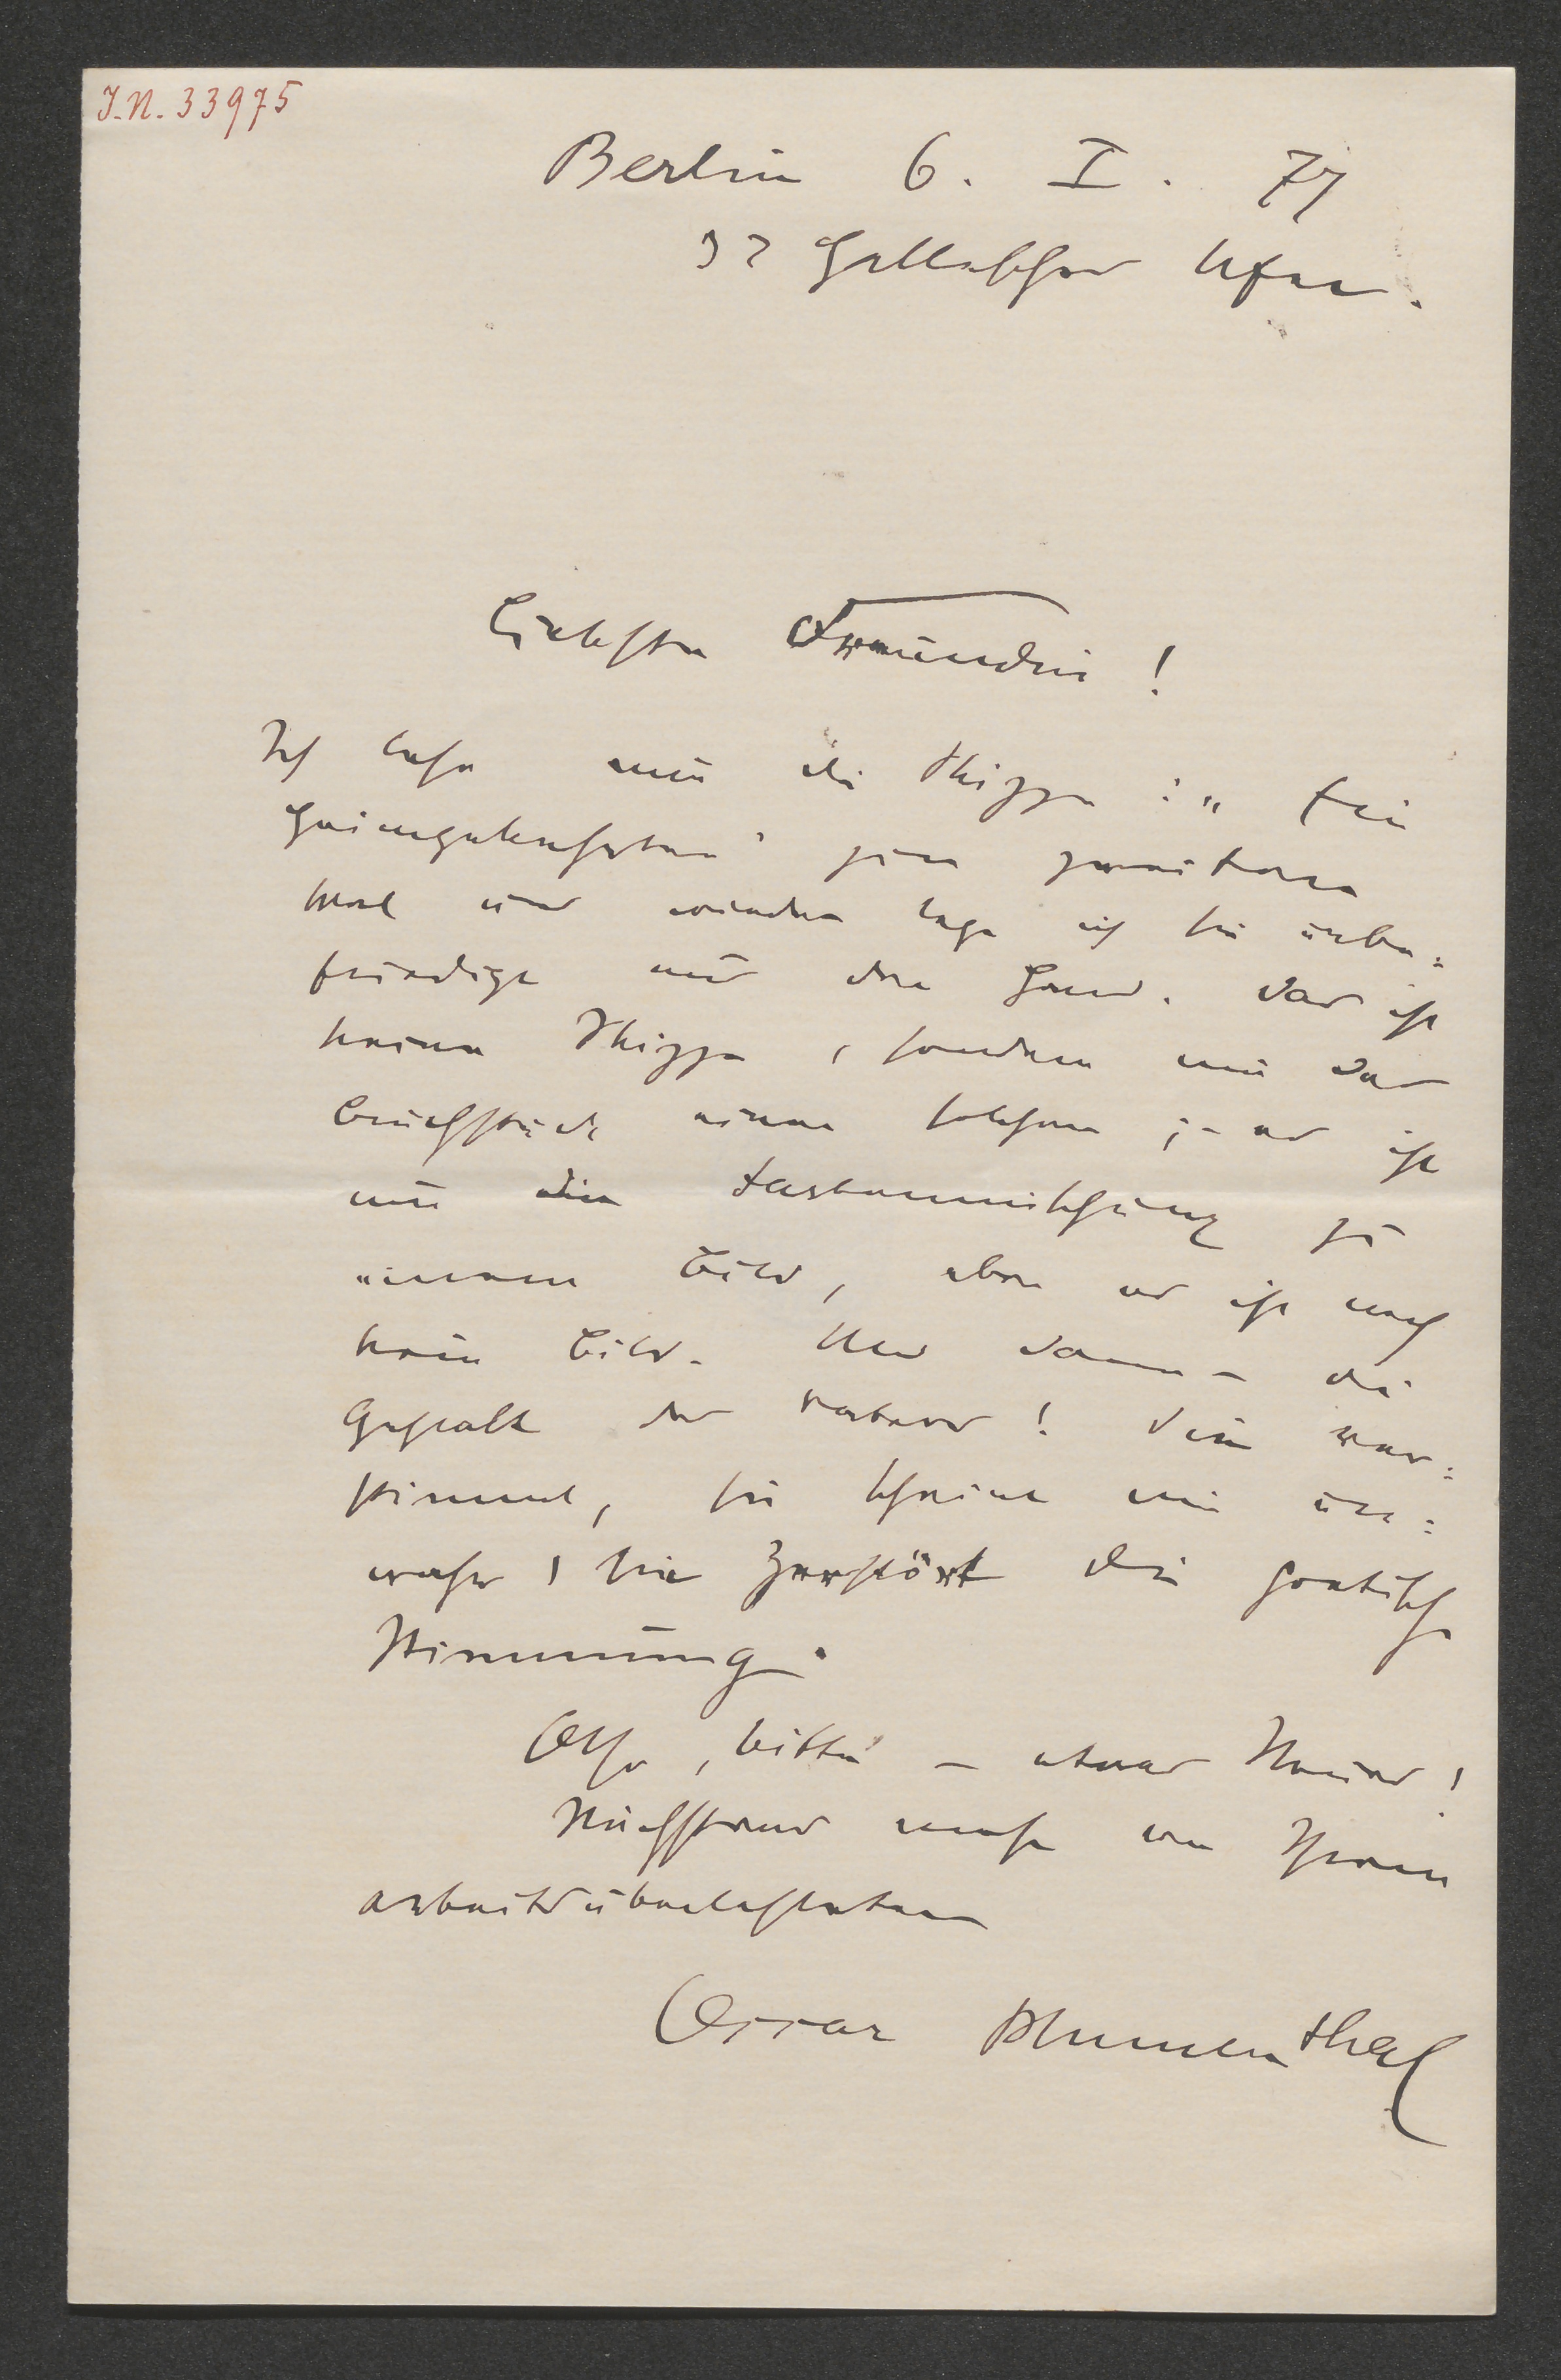 I.N. 33975
Berlin 6. I. 77
32 Hallesches Ufer.
Liebste Freundin!
Ich lese nun die Skizze: „Ein
Heimgekehrter“ zum zweiten
Mal und wieder lege ich sie unbe=
friedigt aus der Hand. Das ist
keine Skizze, sondern nur das
Bruchstück einer solchen; – es ist
nur die Farbenmischung zu
einem Bild, aber es ist noch
kein Bild. Und dann – die
Gestalt des Vaters! Sie ver=
stimmt, sie scheint mir un=
wahr, sie zerstört die poetische
Stimmung.
Also, bitte – etwas Neues!
Nächstens mehr von Ihrem
arbeitsüberlasteten
Oscar Blumenthal